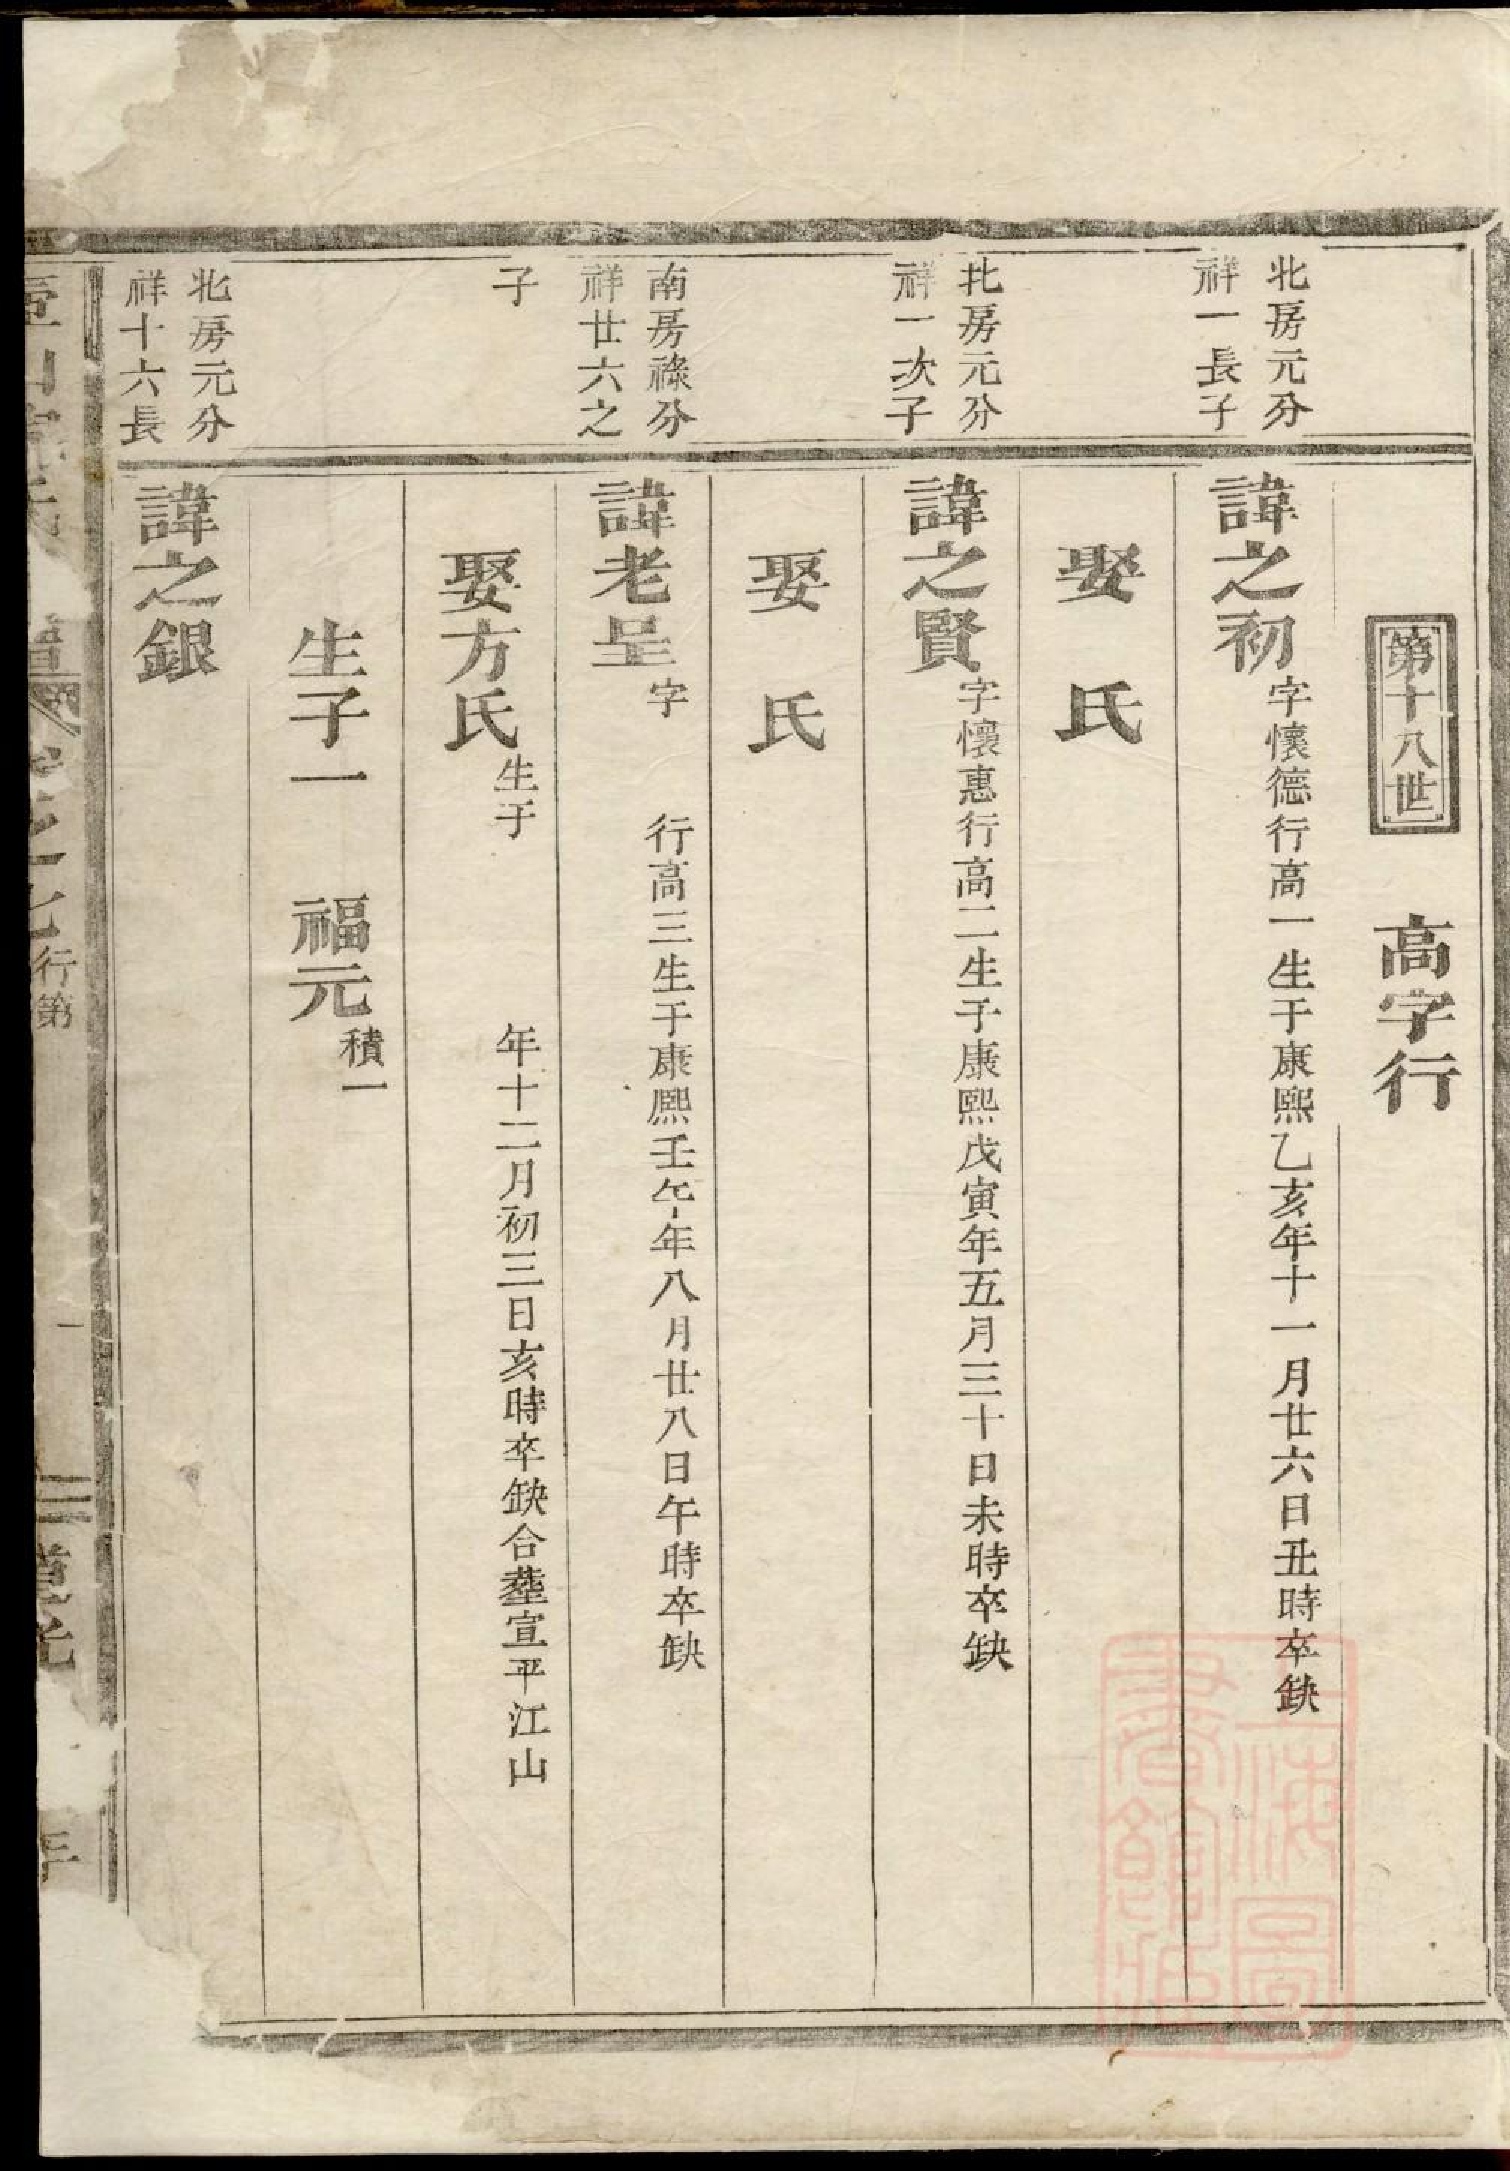 第十八世　高字行
北房元分
祥一長子
諱之初字懷德行高一生于康熙乙亥年十一月廿六日丑時卒缺
娶　氏
北房元分
祥一次子
諱之賢字懷惠行高二生于康熙戊寅年五月三十日未時卒缺
娶　氏
南房祿分
祥廿六之
子
諱老呈字　行高三生于康熙壬午年八月廿八日午時卒缺
娶方氏生于　年十二月初三日亥時卒缺合塟宣平江山
生子一　福元積一
北房元分
祥十六長
諱之銀
行第
一
道光
年
上海圖
書館藏